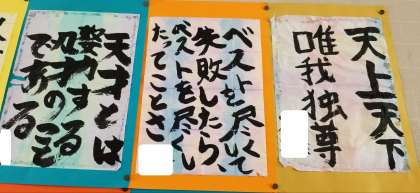 天上天下
唯我独尊
ベストを尽くして
失敗したら、
ベストを尽くし
たってことさ
天才とは
努力する
凡才のこと
である